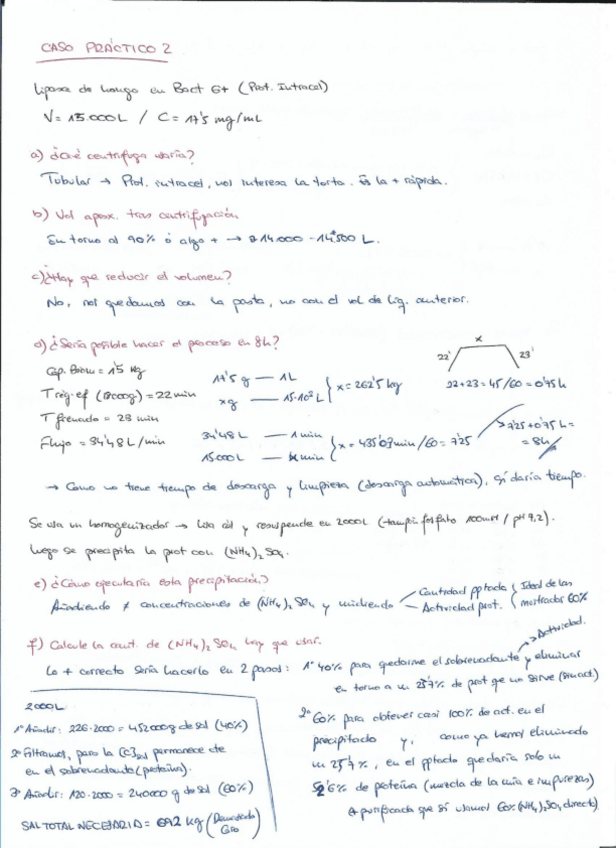 CASO PRÁCTICO 2
Lipasa de hongo en Bact G+ (Prot. Intracel)
V = 15.000L / C = 17'5 mg/mL
a) ¿Qué centrífuga usaría?
Tubular → Prot. intracel, nos interesa la torta. Es la + rápida.
b) Vol aprox. tras centrifugación
En torno al 90% ó algo + → 14.000 - 14.500 L.
c) ¿Hay que reducir el volumen?
No, nos quedamos con la pasta, no con el vol de liq. anterior.
d) ¿Sería posible hacer el proceso en 8h?
Cap. Biom = 1'5 Kg
T reg. ef (13000g) = 22 min
T frenado = 23 min
Flujo = 34'48 L/min
17'5 g — 1L
xg — 15·10³ L } x = 262'5 kg
34'48L — 1 min
15000L — x min } x = 435'03 min /60 = 7'25
22' x 23'
22+23 = 45/60 = 0'75 h
7'25+0'75 h =
= 8h
→ Como no tiene tiempo de descarga y limpieza (descarga automática), sí daría tiempo.
Se usa un homogenizador → lisa cél y resuspende en 2000L (tampón fosfato 100mM / pH 9,2).
Luego se precipita la prot con (NH4)2SO4.
e) ¿Cómo ejecutaría esta precipitación?
Añadiendo ≠ concentraciones de (NH4)2SO4 y midiendo
Cantidad pptada
Actividad prot.
Ideal de las
mostradas 60%
f) Calcule la cant. de (NH4)2SO4 hay que usar.
Lo + correcto sería hacerlo en 2 pasos: 1º 40% para quedarme el sobrenadante y eliminar
Actividad.
en torno a un 25'7% de prot que no sirve (sin act)
2º 60% para obtener casi 100% de act. en el
precipitado y, como ya hemos eliminado
un 25'7%, en el pptado quedaría solo un
52'6% de proteína (mezcla de la mía e impurezas)
(+ purificada que si usamos 60% (NH4)2SO4 directo)
2000L
1º Añadir: 226·2000 = 452000g de sal (40%)
2º Filtramos, pero la [C]sal permanece cte
en el sobrenadante (proteína).
3º Añadir: 120·2000 = 240000 g de sal (60%)
SAL TOTAL NECESARIA = 692 kg (Demasiado